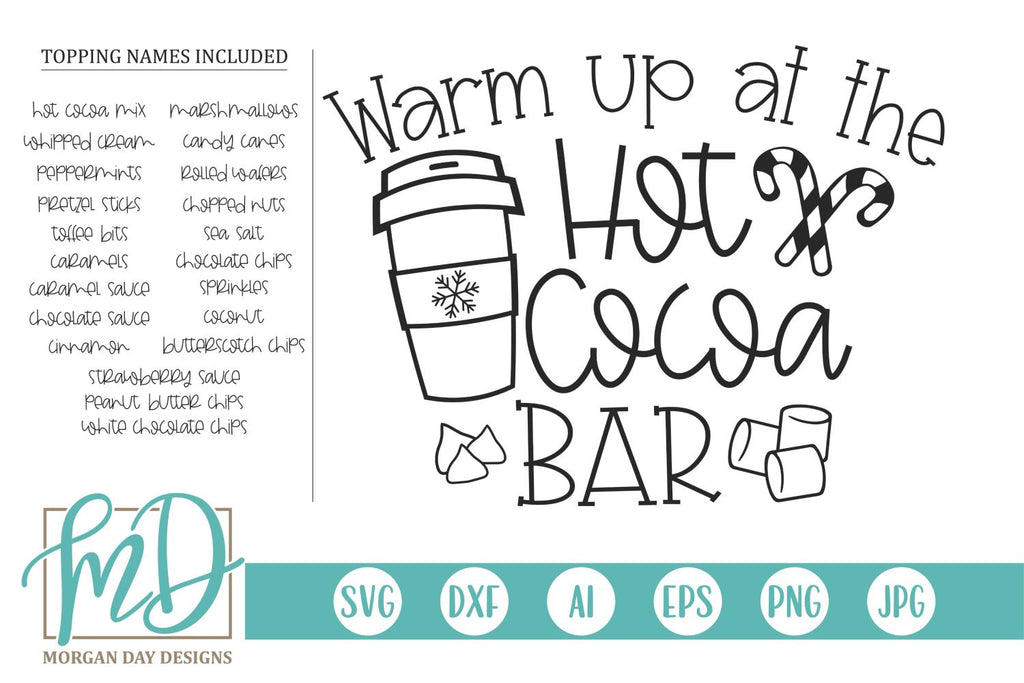 TOPPING NAMES INCLUDED
hot cocoa mix
marshmallows
whipped cream
candy canes
peppermints
rolled wafers
pretzel sticks
chopped nuts
toffee bits
sea salt
caramels
chocolate chips
caramel sauce
sprinkles
chocolate sauce
coconut
cinnamon
butterscotch chips
strawberry sauce
peanut butter chips
white chocolate chips
Warm up at the
Hot
Cocoa
BAR
MD
MORGAN DAY DESIGNS
SVG DXF AI EPS PNG JPG